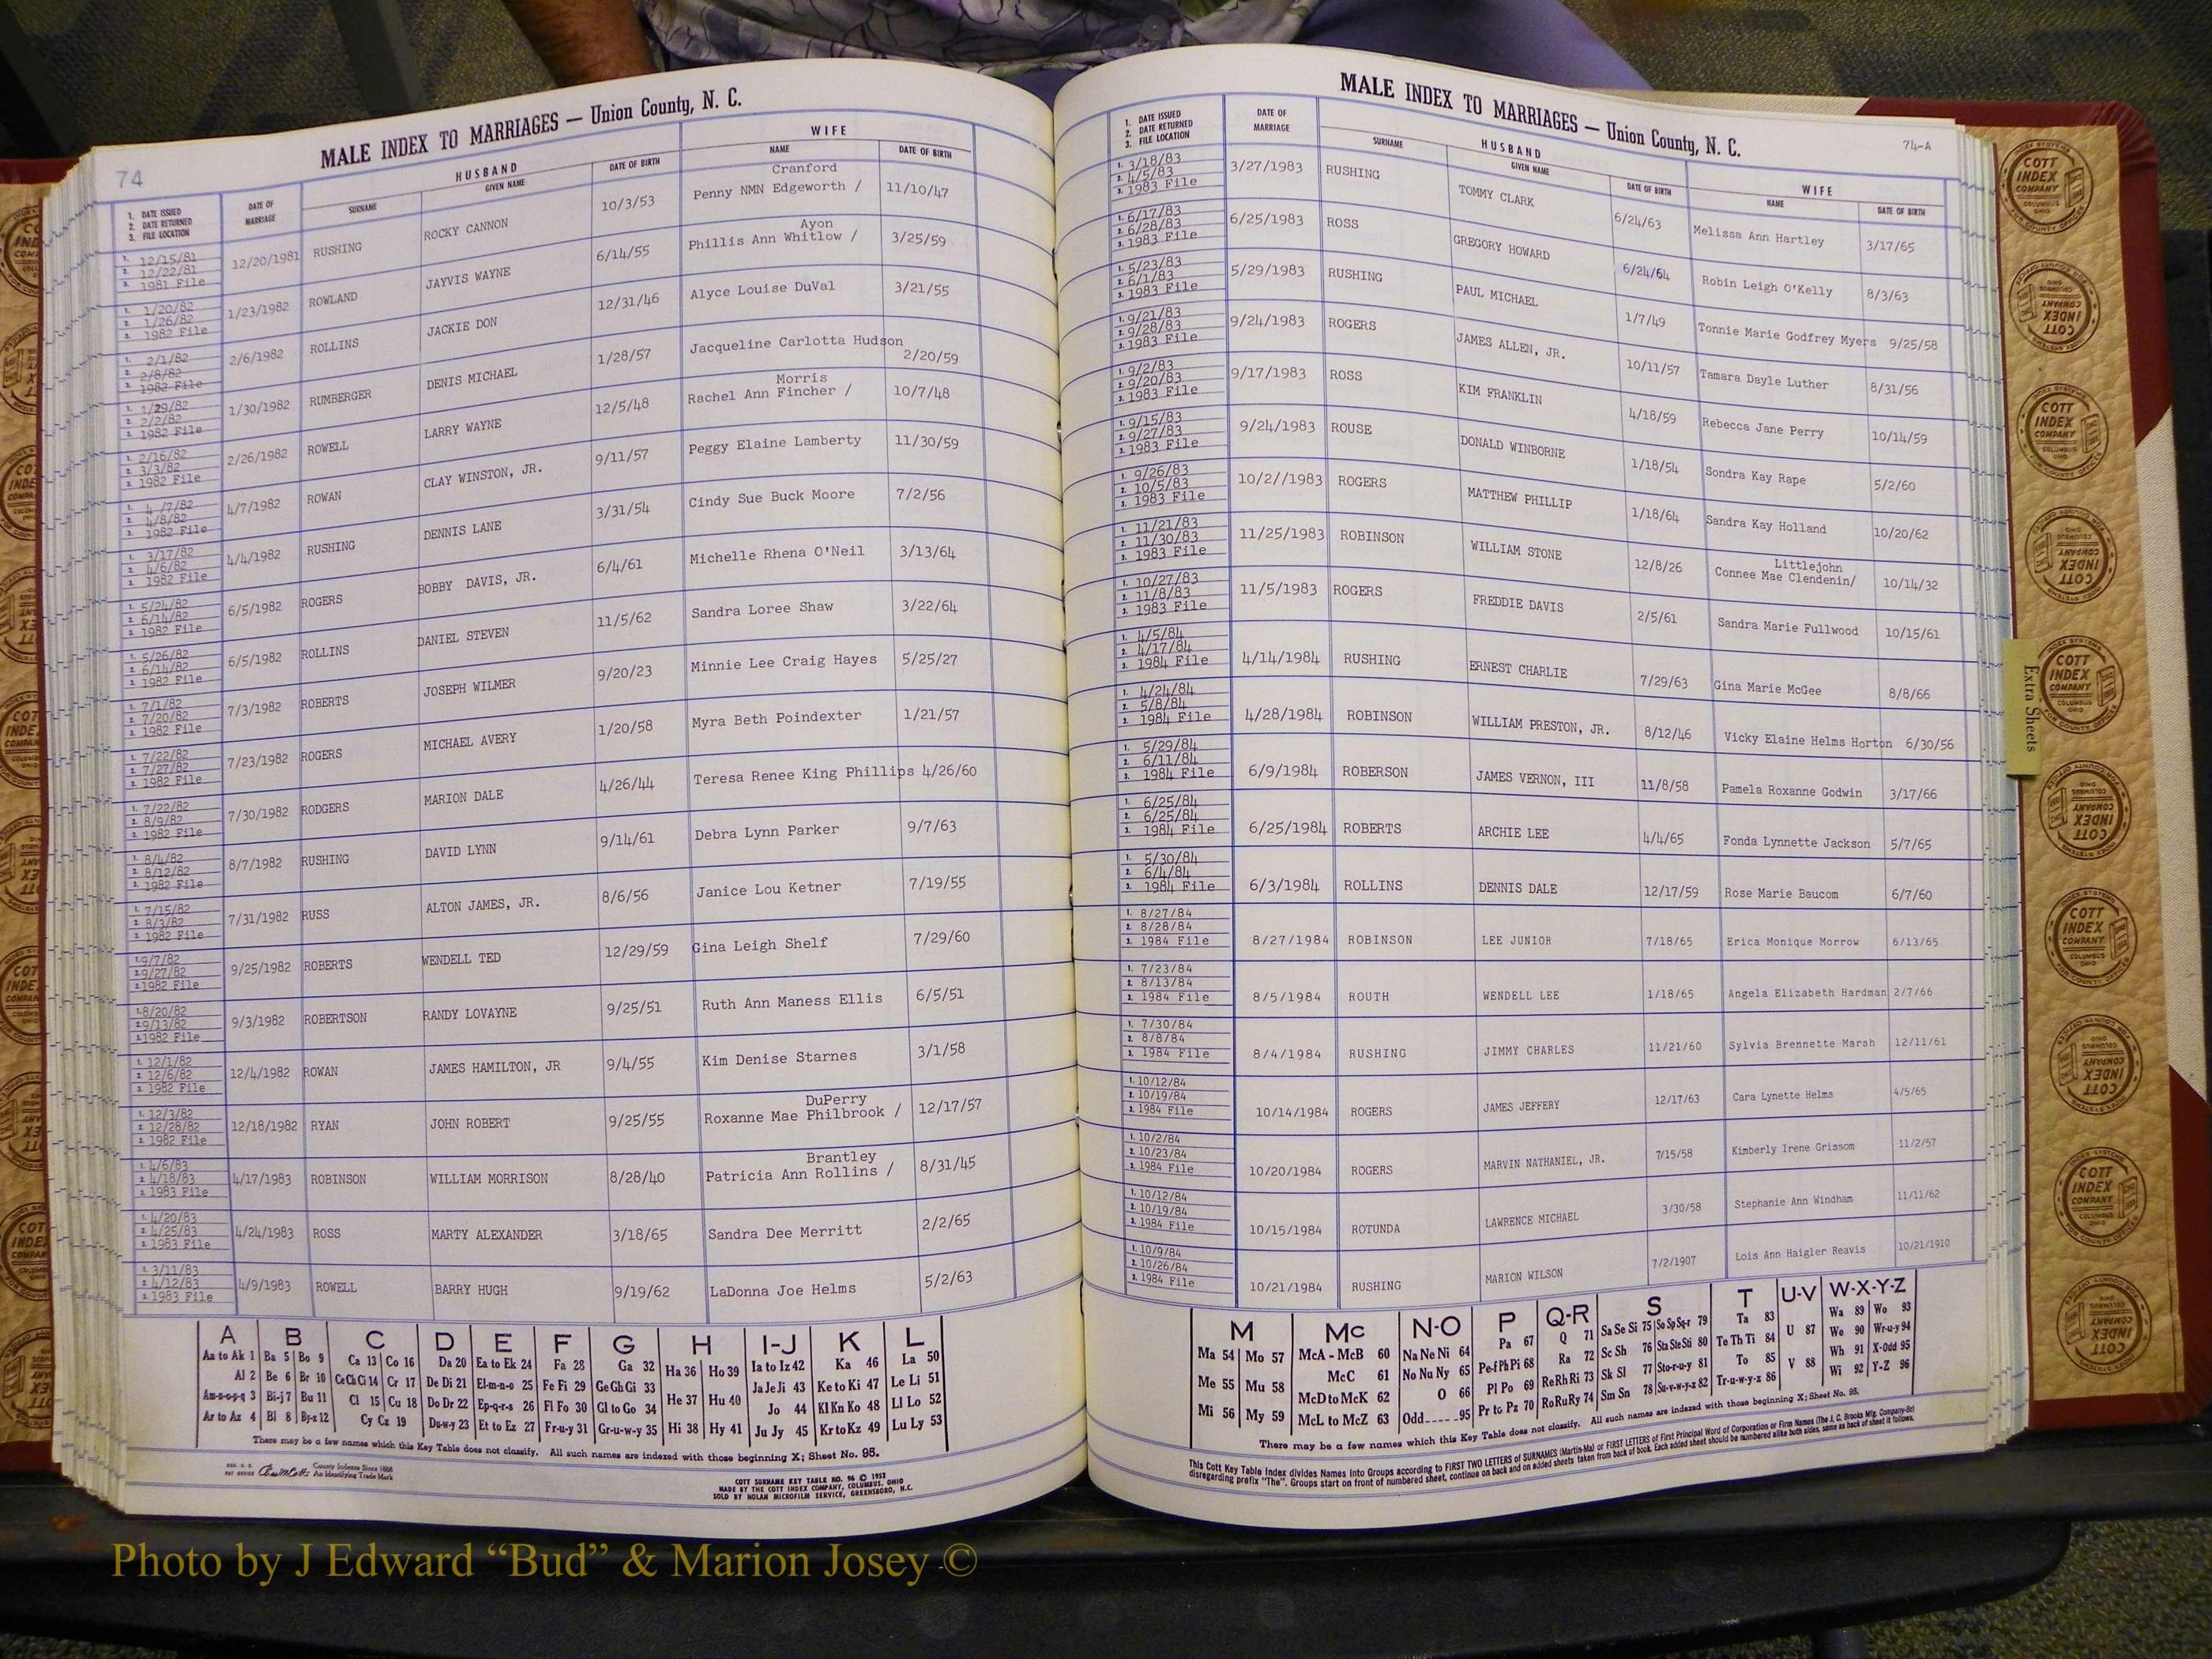 74
MALE INDEX TO MARRIAGES — Union County, N. C.
1. DATE ISSUED 2. DATE RETURNED 3. FILE LOCATION DATE OF MARRIAGE HUSBAND SURNAME GIVEN NAME DATE OF BIRTH WIFE NAME DATE OF BIRTH
1. 12/15/81 2. 12/22/81 3. 1981 File 12/20/1981 RUSHING ROCKY CANNON 10/3/53 Penny NMN Edgeworth / Cranford 11/10/47
1. 1/20/82 2. 1/26/82 3. 1982 File 1/23/1982 ROWLAND JAYVIS WAYNE 6/14/55 Phillis Ann Whitlow / Ayon 3/25/59
1. 2/1/82 2. 2/8/82 3. 1982 File 2/6/1982 ROLLINS JACKIE DON 12/31/46 Alyce Louise DuVal 3/21/55
1. 1/29/82 2. 2/2/82 3. 1982 File 1/30/1982 RUMBERGER DENIS MICHAEL 1/28/57 Jacqueline Carlotta Hudson 2/20/59
1. 2/16/82 2. 3/3/82 3. 1982 File 2/26/1982 ROWELL LARRY WAYNE 12/5/48 Rachel Ann Fincher / Morris 10/7/48
1. 4/7/82 2. 4/8/82 3. 1982 File 4/7/1982 ROWAN CLAY WINSTON, JR. 9/11/57 Peggy Elaine Lamberty 11/30/59
1. 3/17/82 2. 4/6/82 3. 1982 File 4/4/1982 RUSHING DENNIS LANE 3/31/54 Cindy Sue Buck Moore 7/2/56
1. 5/24/82 2. 6/14/82 3. 1982 File 6/5/1982 ROGERS BOBBY DAVIS, JR. 6/4/61 Michelle Rhena O'Neil 3/13/64
1. 5/26/82 2. 6/14/82 3. 1982 File 6/5/1982 ROLLINS DANIEL STEVEN 11/5/62 Sandra Loree Shaw 3/22/64
1. 7/1/82 2. 7/20/82 3. 1982 File 7/3/1982 ROBERTS JOSEPH WILMER 9/20/23 Minnie Lee Craig Hayes 5/25/27
1. 7/22/82 2. 7/27/82 3. 1982 File 7/23/1982 ROGERS MICHAEL AVERY 1/20/58 Myra Beth Poindexter 1/21/57
1. 7/22/82 2. 8/9/82 3. 1982 File 7/30/1982 RODGERS MARION DALE 4/26/44 Teresa Renee King Phillips 4/26/60
1. 8/4/82 2. 8/12/82 3. 1982 File 8/7/1982 RUSHING DAVID LYNN 9/14/61 Debra Lynn Parker 9/7/63
1. 7/15/82 2. 8/3/82 3. 1982 File 7/31/1982 RUSS ALTON JAMES, JR. 8/6/56 Janice Lou Ketner 7/19/55
1. 9/7/82 2. 9/27/82 3. 1982 File 9/25/1982 ROBERTS WENDELL TED 12/29/59 Gina Leigh Shelf 7/29/60
1. 8/20/82 2. 9/13/82 3. 1982 File 9/3/1982 ROBERTSON RANDY LOVAYNE 9/25/51 Ruth Ann Maness Ellis 6/5/51
1. 12/1/82 2. 12/6/82 3. 1982 File 12/4/1982 ROWAN JAMES HAMILTON, JR 9/4/55 Kim Denise Starnes 3/1/58
1. 12/3/82 2. 12/28/82 3. 1982 File 12/18/1982 RYAN JOHN ROBERT 9/25/55 Roxanne Mae Philbrook / DuPerry 12/17/57
1. 4/6/83 2. 4/18/83 3. 1983 File 4/17/1983 ROBINSON WILLIAM MORRISON 8/28/40 Patricia Ann Rollins / Brantley 8/31/45
1. 4/20/83 2. 4/25/83 3. 1983 File 4/24/1983 ROSS MARTY ALEXANDER 3/18/65 Sandra Dee Merritt 2/2/65
1. 3/11/83 2. 4/12/83 3. 1983 File 4/9/1983 ROWELL BARRY HUGH 9/19/62 LaDonna Joe Helms 5/2/63
A B C D E F G H I-J K L
Aa to Ak 1 Ba 5 Bo 9 Ca 13 Co 16 Da 20 Ea to Ek 24 Fa 28 Ga 32 Ha 36 Ho 39 Ia to Iz 42 Ka 46 La 50
Al 2 Be 6 Br 10 Ce Ch Ci 14 Cr 17 De Di 21 El-m-n-o 25 Fe Fi 29 Ge Gh Gi 33 He 37 Hu 40 Ja Je Ji 43 Ke to Ki 47 Le Li 51
Am-n-o-p-q 3 Bi-j 7 Bu 11 Cl 15 Cu 18 Do Dr 22 Ep-q-r-s 26 Fl Fo 30 Gl to Go 34 Hi 38 Hy 41 Jo 44 Kl Kn Ko 48 Ll Lo 52
Ar to Az 4 Bl 8 By-z 12 Cy Cz 19 Du-w-y 23 Et to Ez 27 Fr-u-y 31 Gr-u-w-y 35 Ju Jy 45 Kr to Kz 49 Lu Ly 53
There may be a few names which this Key Table does not classify. All such names are indexed with those beginning X; Sheet No. 95.
REG. U. S. PAT. OFFICE County Indexes Since 1888 An Identifying Trade Mark
COTT SURNAME KEY TABLE NO. 96 © 1952
MADE BY THE COTT INDEX COMPANY, COLUMBUS, OHIO
SOLD BY NOLAN MICROFILM SERVICE, GREENSBORO, N.C.
MALE INDEX TO MARRIAGES — Union County, N. C.
74-A
1. DATE ISSUED 2. DATE RETURNED 3. FILE LOCATION DATE OF MARRIAGE HUSBAND SURNAME GIVEN NAME DATE OF BIRTH WIFE NAME DATE OF BIRTH
1. 3/18/83 2. 4/5/83 3. 1983 File 3/27/1983 RUSHING TOMMY CLARK 6/24/63 Melissa Ann Hartley 3/17/65
1. 6/17/83 2. 6/28/83 3. 1983 File 6/25/1983 ROSS GREGORY HOWARD 6/24/64 Robin Leigh O'Kelly 8/3/63
1. 5/23/83 2. 6/1/83 3. 1983 File 5/29/1983 RUSHING PAUL MICHAEL 1/7/49 Tonnie Marie Godfrey Myers 9/25/58
1. 9/21/83 2. 9/28/83 3. 1983 File 9/24/1983 ROGERS JAMES ALLEN, JR. 10/11/57 Tamara Dayle Luther 8/31/56
1. 9/2/83 2. 9/20/83 3. 1983 File 9/17/1983 ROSS KIM FRANKLIN 4/18/59 Rebecca Jane Perry 10/14/59
1. 9/15/83 2. 9/27/83 3. 1983 File 9/24/1983 ROUSE DONALD WINBORNE 1/18/54 Sondra Kay Rape 5/2/60
1. 9/26/83 2. 10/5/83 3. 1983 File 10/2//1983 ROGERS MATTHEW PHILLIP 1/18/64 Sandra Kay Holland 10/20/62
1. 11/21/83 2. 11/30/83 3. 1983 File 11/25/1983 ROBINSON WILLIAM STONE 12/8/26 Connee Mae Clendenin/ Littlejohn 10/14/32
1. 10/27/83 2. 11/8/83 3. 1983 File 11/5/1983 ROGERS FREDDIE DAVIS 2/5/61 Sandra Marie Fullwood 10/15/61
1. 4/5/84 2. 4/17/84 3. 1984 File 4/14/1984 RUSHING ERNEST CHARLIE 7/29/63 Gina Marie McGee 8/8/66
1. 4/24/84 2. 5/8/84 3. 1984 File 4/28/1984 ROBINSON WILLIAM PRESTON, JR. 8/12/46 Vicky Elaine Helms Horton 6/30/56
1. 5/29/84 2. 6/11/84 3. 1984 File 6/9/1984 ROBERSON JAMES VERNON, III 11/8/58 Pamela Roxanne Godwin 3/17/66
1. 6/25/84 2. 6/25/84 3. 1984 File 6/25/1984 ROBERTS ARCHIE LEE 4/4/65 Fonda Lynnette Jackson 5/7/65
1. 5/30/84 2. 6/4/84 3. 1984 File 6/3/1984 ROLLINS DENNIS DALE 12/17/59 Rose Marie Baucom 6/7/60
1. 8/27/84 2. 8/28/84 3. 1984 File 8/27/1984 ROBINSON LEE JUNIOR 7/18/65 Erica Monique Morrow 6/13/65
1. 7/23/84 2. 8/13/84 3. 1984 File 8/5/1984 ROUTH WENDELL LEE 1/18/65 Angela Elizabeth Hardman 2/7/66
1. 7/30/84 2. 8/8/84 3. 1984 File 8/4/1984 RUSHING JIMMY CHARLES 11/21/60 Sylvia Brennette Marsh 12/11/61
1. 10/12/84 2. 10/19/84 3. 1984 File 10/14/1984 ROGERS JAMES JEFFERY 12/17/63 Cara Lynette Helms 4/5/65
1. 10/2/84 2. 10/23/84 3. 1984 File 10/20/1984 ROGERS MARVIN NATHANIEL, JR. 7/15/58 Kimberly Irene Grissom 11/2/57
1. 10/12/84 2. 10/19/84 3. 1984 File 10/15/1984 ROTUNDA LAWRENCE MICHAEL 3/30/58 Stephanie Ann Windham 11/11/62
1. 10/9/84 2. 10/26/84 3. 1984 File 10/21/1984 RUSHING MARION WILSON 7/2/1907 Lois Ann Haigler Reavis 10/21/1910
M Mc N-O P Q-R S T U-V W-X-Y-Z
Ma 54 Mo 57 McA - McB 60 Na Ne Ni 64 Pa 67 Q 71 Sa Se Si 75 So Sp Sq-r 79 Ta 83 U 87 Wa 89 Wo 93
Me 55 Mu 58 McC 61 No Nu Ny 65 Pe-f Ph Pi 68 Ra 72 Sc Sh 76 Sta Ste Sti 80 Te Th Ti 84 V 88 We 90 Wr-u-y 94
Mi 56 My 59 McD to McK 62 O 66 Pl Po 69 Re Rh Ri 73 Sk Sl 77 Sto-r-u-y 81 To 85 Wh 91 X-Odd 95
McL to McZ 63 Odd-----95 Pr to Pz 70 Ro Ru Ry 74 Sm Sn 78 Su-v-w-y-z 82 Tr-u-w-y-z 86 Wi 92 Y-Z 96
There may be a few names which this Key Table does not classify. All such names are indexed with those beginning X; Sheet No. 95.
This Cott Key Table Index divides Names into Groups according to FIRST TWO LETTERS of SURNAMES (Martin-Ma) or FIRST LETTERS of First Principal Word of Corporation or Firm Names (The J. C. Brooks Mfg. Company-Br)
disregarding prefix "The". Groups start on front of numbered sheet, continue on back and on added sheets taken from back of book. Each added sheet should be numbered alike both sides, same as back of sheet it follows.
Extra Sheets
INDEX SYSTEMS
COTT INDEX COMPANY
COLUMBUS OHIO
FOR COUNTY OFFICES
Photo by J Edward “Bud” & Marion Josey ©